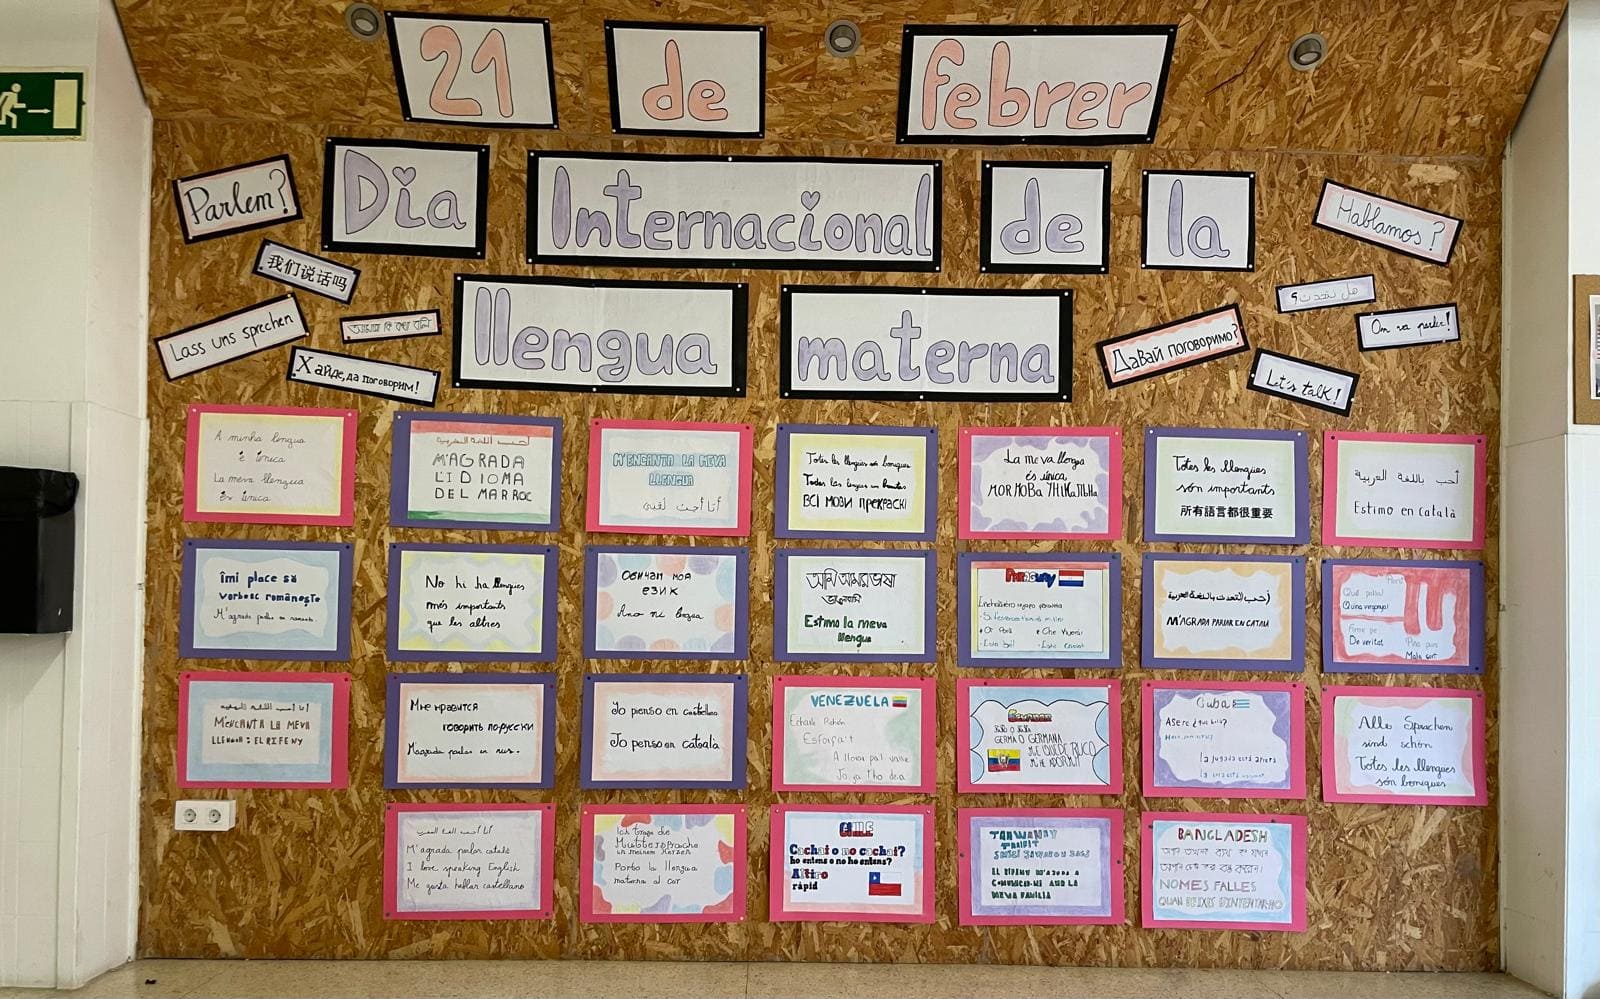 21 de febrer
Dia Internacional de la
llengua materna
Parlem?
我们说话吗
Lass uns sprechen
Хайде, да поговорим!
Hablamos?
هل نتحدث؟
On va parler!
Давай поговоримо?
Let's talk!
A minha lengua
é única
La meva llengua
és única
أحب اللغة المغربية
M'AGRADA
L'IDIOMA
DEL MARROC
M'ENCANTA LA MEVA
LLENGUA
أنا أحب لغتي
Totes les llengües són boniques
Todas las lenguas son bonitas
ВСІ МОВИ ПРЕКРАСНІ
La meva llengua
és única
МОЯ МОВА УНІКАЛЬНА
Totes les llengües
són importants
所有語言都很重要
أحب باللغة العربية
Estimo en català
îmi place să
vorbesc românește
M'agrada parlar en romanès.
No hi ha llengües
més importants
que les altres
ОБИЧАМ МОЯ
ЕЗИК
Amo mi lengua
অামি আমার ভাষা
ভালোবাসি
Estimo la meva
llengua
Paraguay
M'AGRADA PARLAR EN CATALÀ
Qué palta!
Quina vergonya!
De veritat
Mala sort
M'ENCANTA LA MEVA
LLENGUA: EL RIFENY
Мне нравится
говорить по русски
M'agrada parlar en rus.
Yo pienso en castellano
Jo penso en català
VENEZUELA
Echarle Pichón
Esforça't
Jo ja t'ho deia
GERMÀ O GERMANA
ME QUEDE RUCO
M'HE ADORMIT
Cuba
Asere ¿qué bola?
la jugada está apretá
Alle Sprachen
sind schön
Totes les llengües
són boniques
M'agrada parlar català
I love speaking English
Me gusta hablar castellano
Ich trage die
Muttersprache
in meinem Herzen
Porto la llengua
materna al cor
CHILE
Cachai o no cachai?
ho entens o no ho entens?
Altiro
ràpid
EL RIFENY M'AJUDA A
COMUNICAR-ME AMB LA
MEVA FAMÍLIA
BANGLADESH
NOMES FALLES
QUAN DEIXES D'INTENTAR-HO